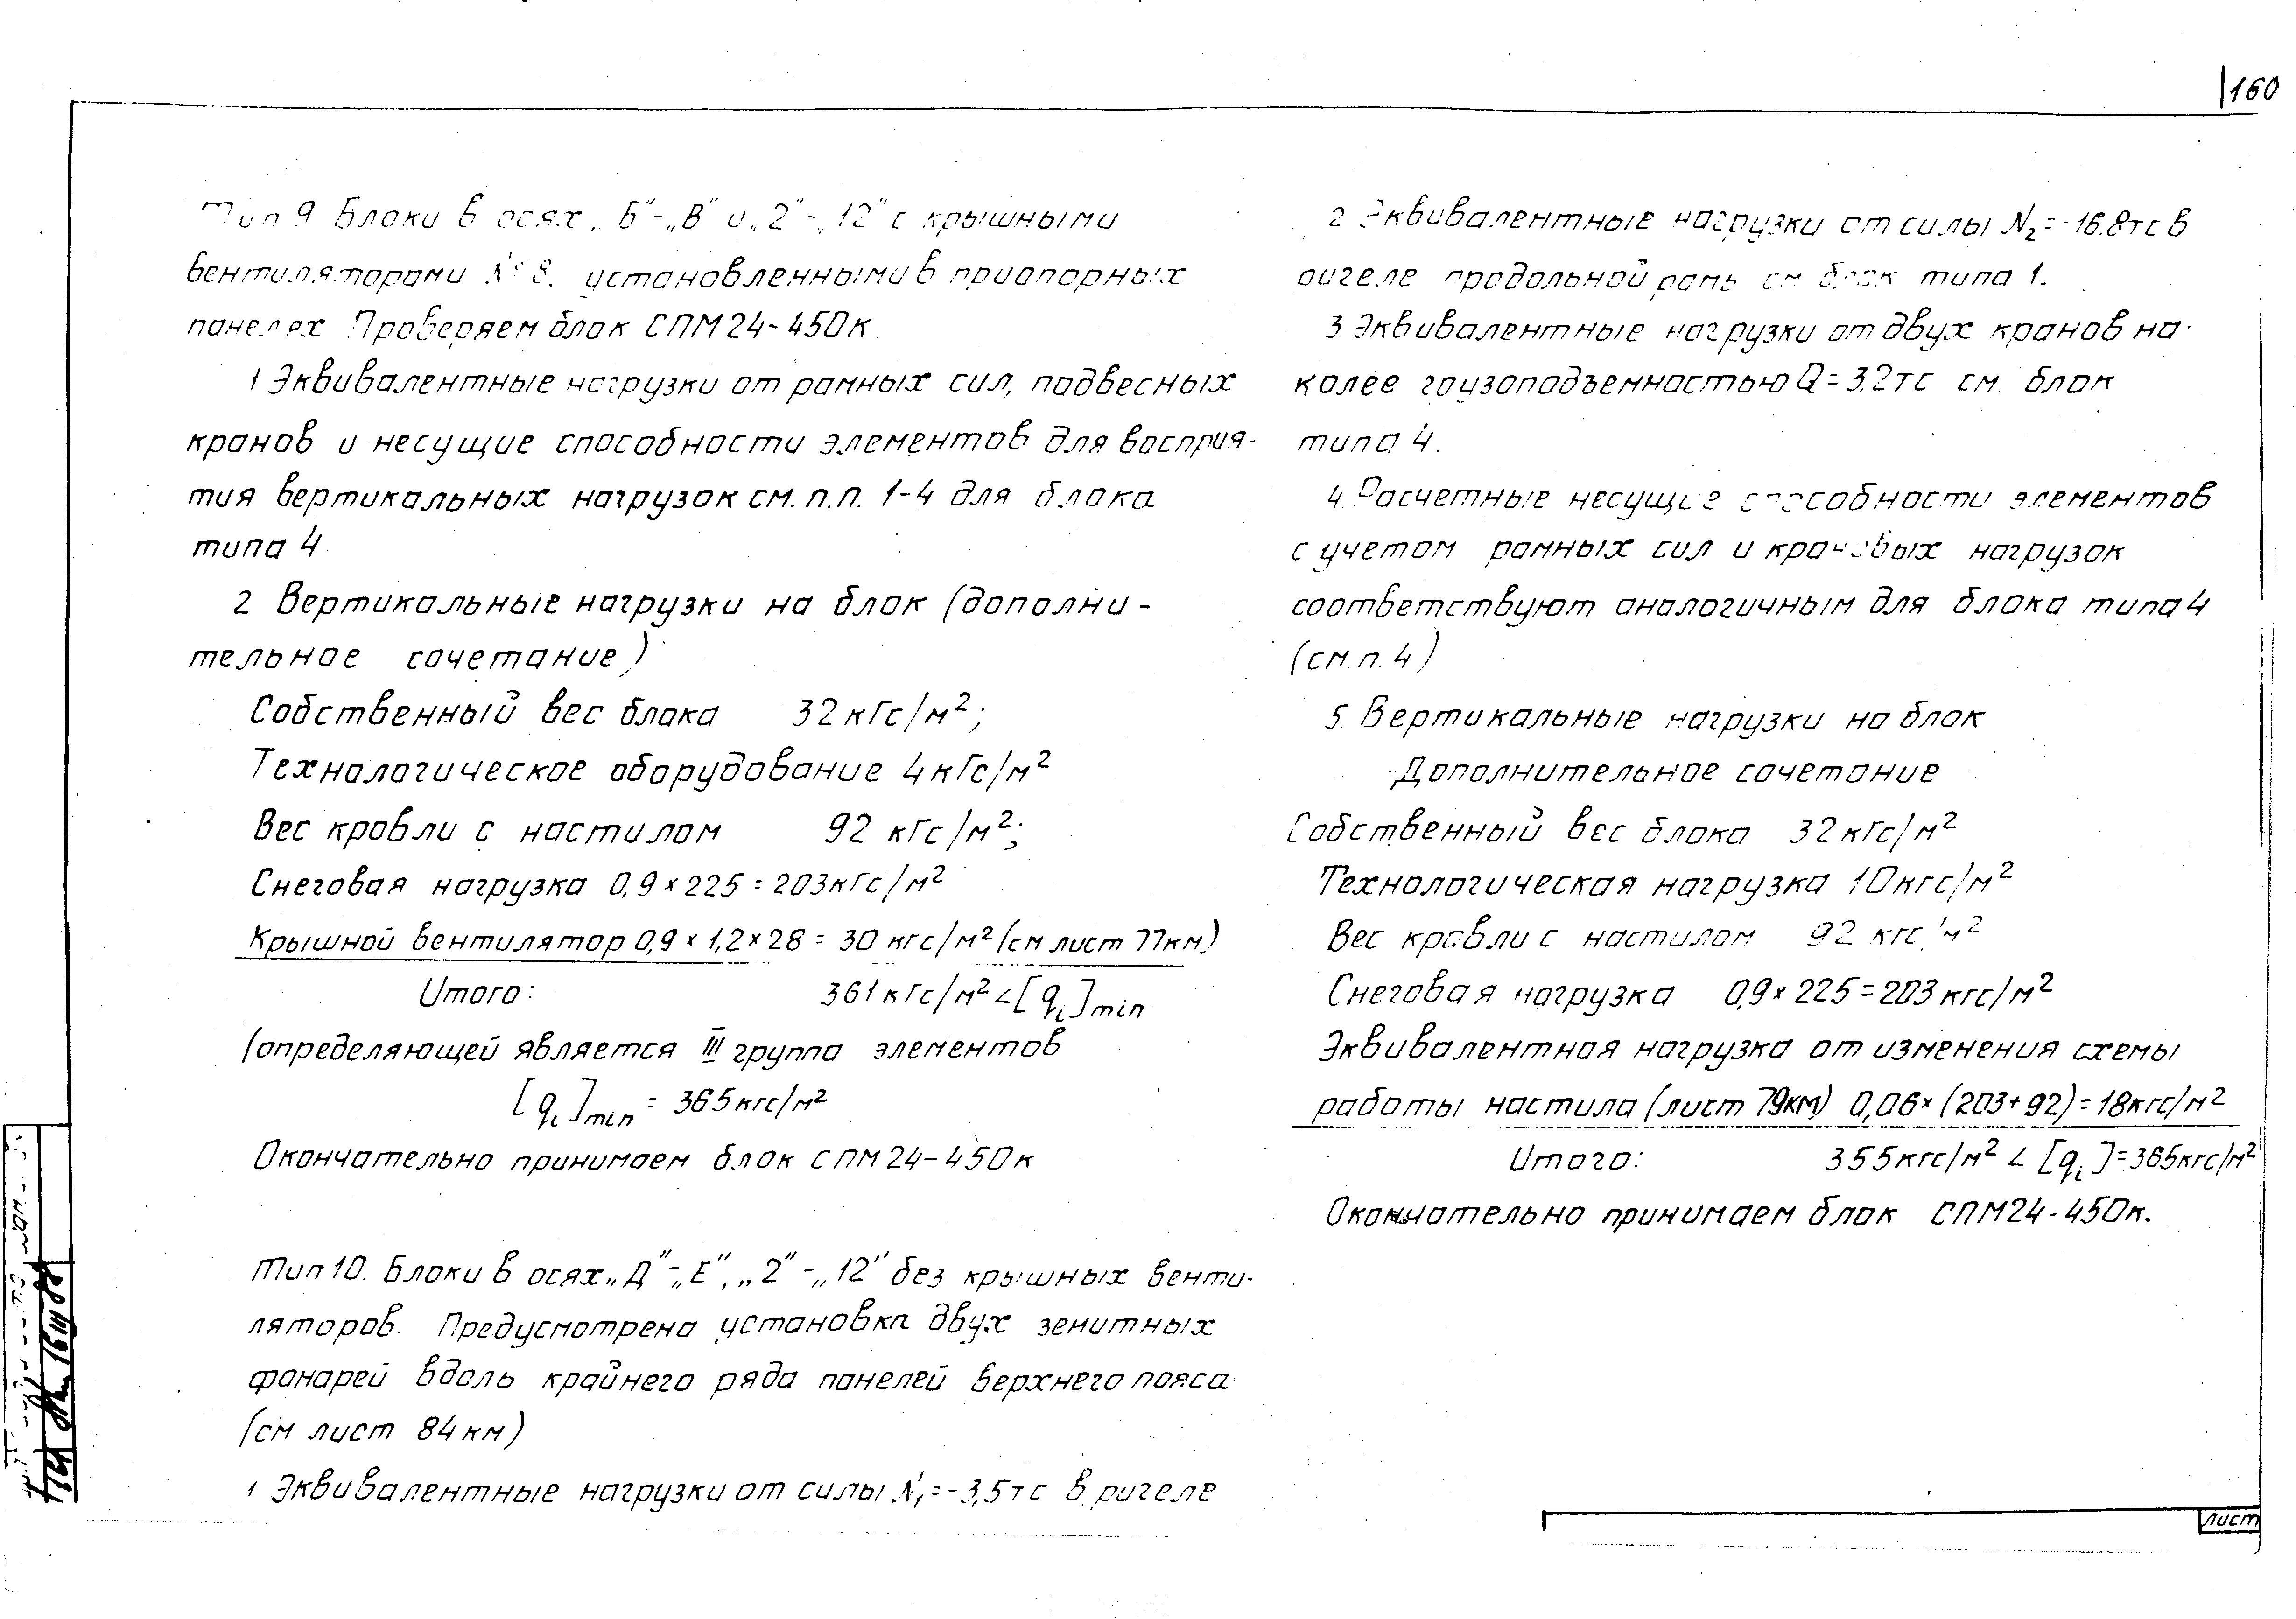 160
Тип 9 Блоки в осях „Б"-„В" и „2"-„12" с крышными
вентиляторами №8, установленными в приопорных
панелях Проверяем блок СПМ24-450к.
1 Эквивалентные нагрузки от рамных сил, подвесных
кранов и несущие способности элементов для восприя-
тия вертикальных нагрузок см. п.п. 1-4 для блока
типа 4.
2 Вертикальные нагрузки на блок (дополни-
тельное сочетание)
Собственный вес блока 32 кГс/м²;
Технологическое оборудование 4 кГс/м²
Вес кровли с настилом 92 кГс/м²;
Снеговая нагрузка 0,9 × 225 = 203 кГс/м²
Крышной вентилятор 0,9 × 1,2 × 28 = 30 кгс/м² (см лист 77км)
Итого: 361 кГс/м² < [qi]min
(определяющей является III группа элементов
[qi]min = 365 кгс/м²
Окончательно принимаем блок СПМ24-450к
Тип 10. Блоки в осях „Д"-„Е", „2"-„12" без крышных венти-
ляторов. Предусмотрена установка двух зенитных
фонарей вдоль крайнего ряда панелей верхнего пояса
(см лист 84км)
1 Эквивалентные нагрузки от силы N₁ = -3,5тс в ригеле
2 Эквивалентные нагрузки от силы N₂ = -16.8тс в
ригеле продольной рамы см блок типа 1.
3 Эквивалентные нагрузки от двух кранов на
колее грузоподъемностью Q = 3.2тс см. блок
типа 4.
4. Расчетные несущие способности элементов
с учетом рамных сил и крановых нагрузок
соответствуют аналогичным для блока типа 4
(см. п. 4)
5. Вертикальные нагрузки на блок
Дополнительное сочетание
Собственный вес блока 32 кГс/м²
Технологическая нагрузка 10 кгс/м²
Вес кровли с настилом 92 кгс/м²
Снеговая нагрузка 0,9 × 225 = 203 кгс/м²
Эквивалентная нагрузка от изменения схемы
работы настила (лист 79км) 0,06 × (203 + 92) = 18 кгс/м²
Итого: 355 кгс/м² < [qi] = 365 кгс/м²
Окончательно принимаем блок СПМ24-450к.
Лист